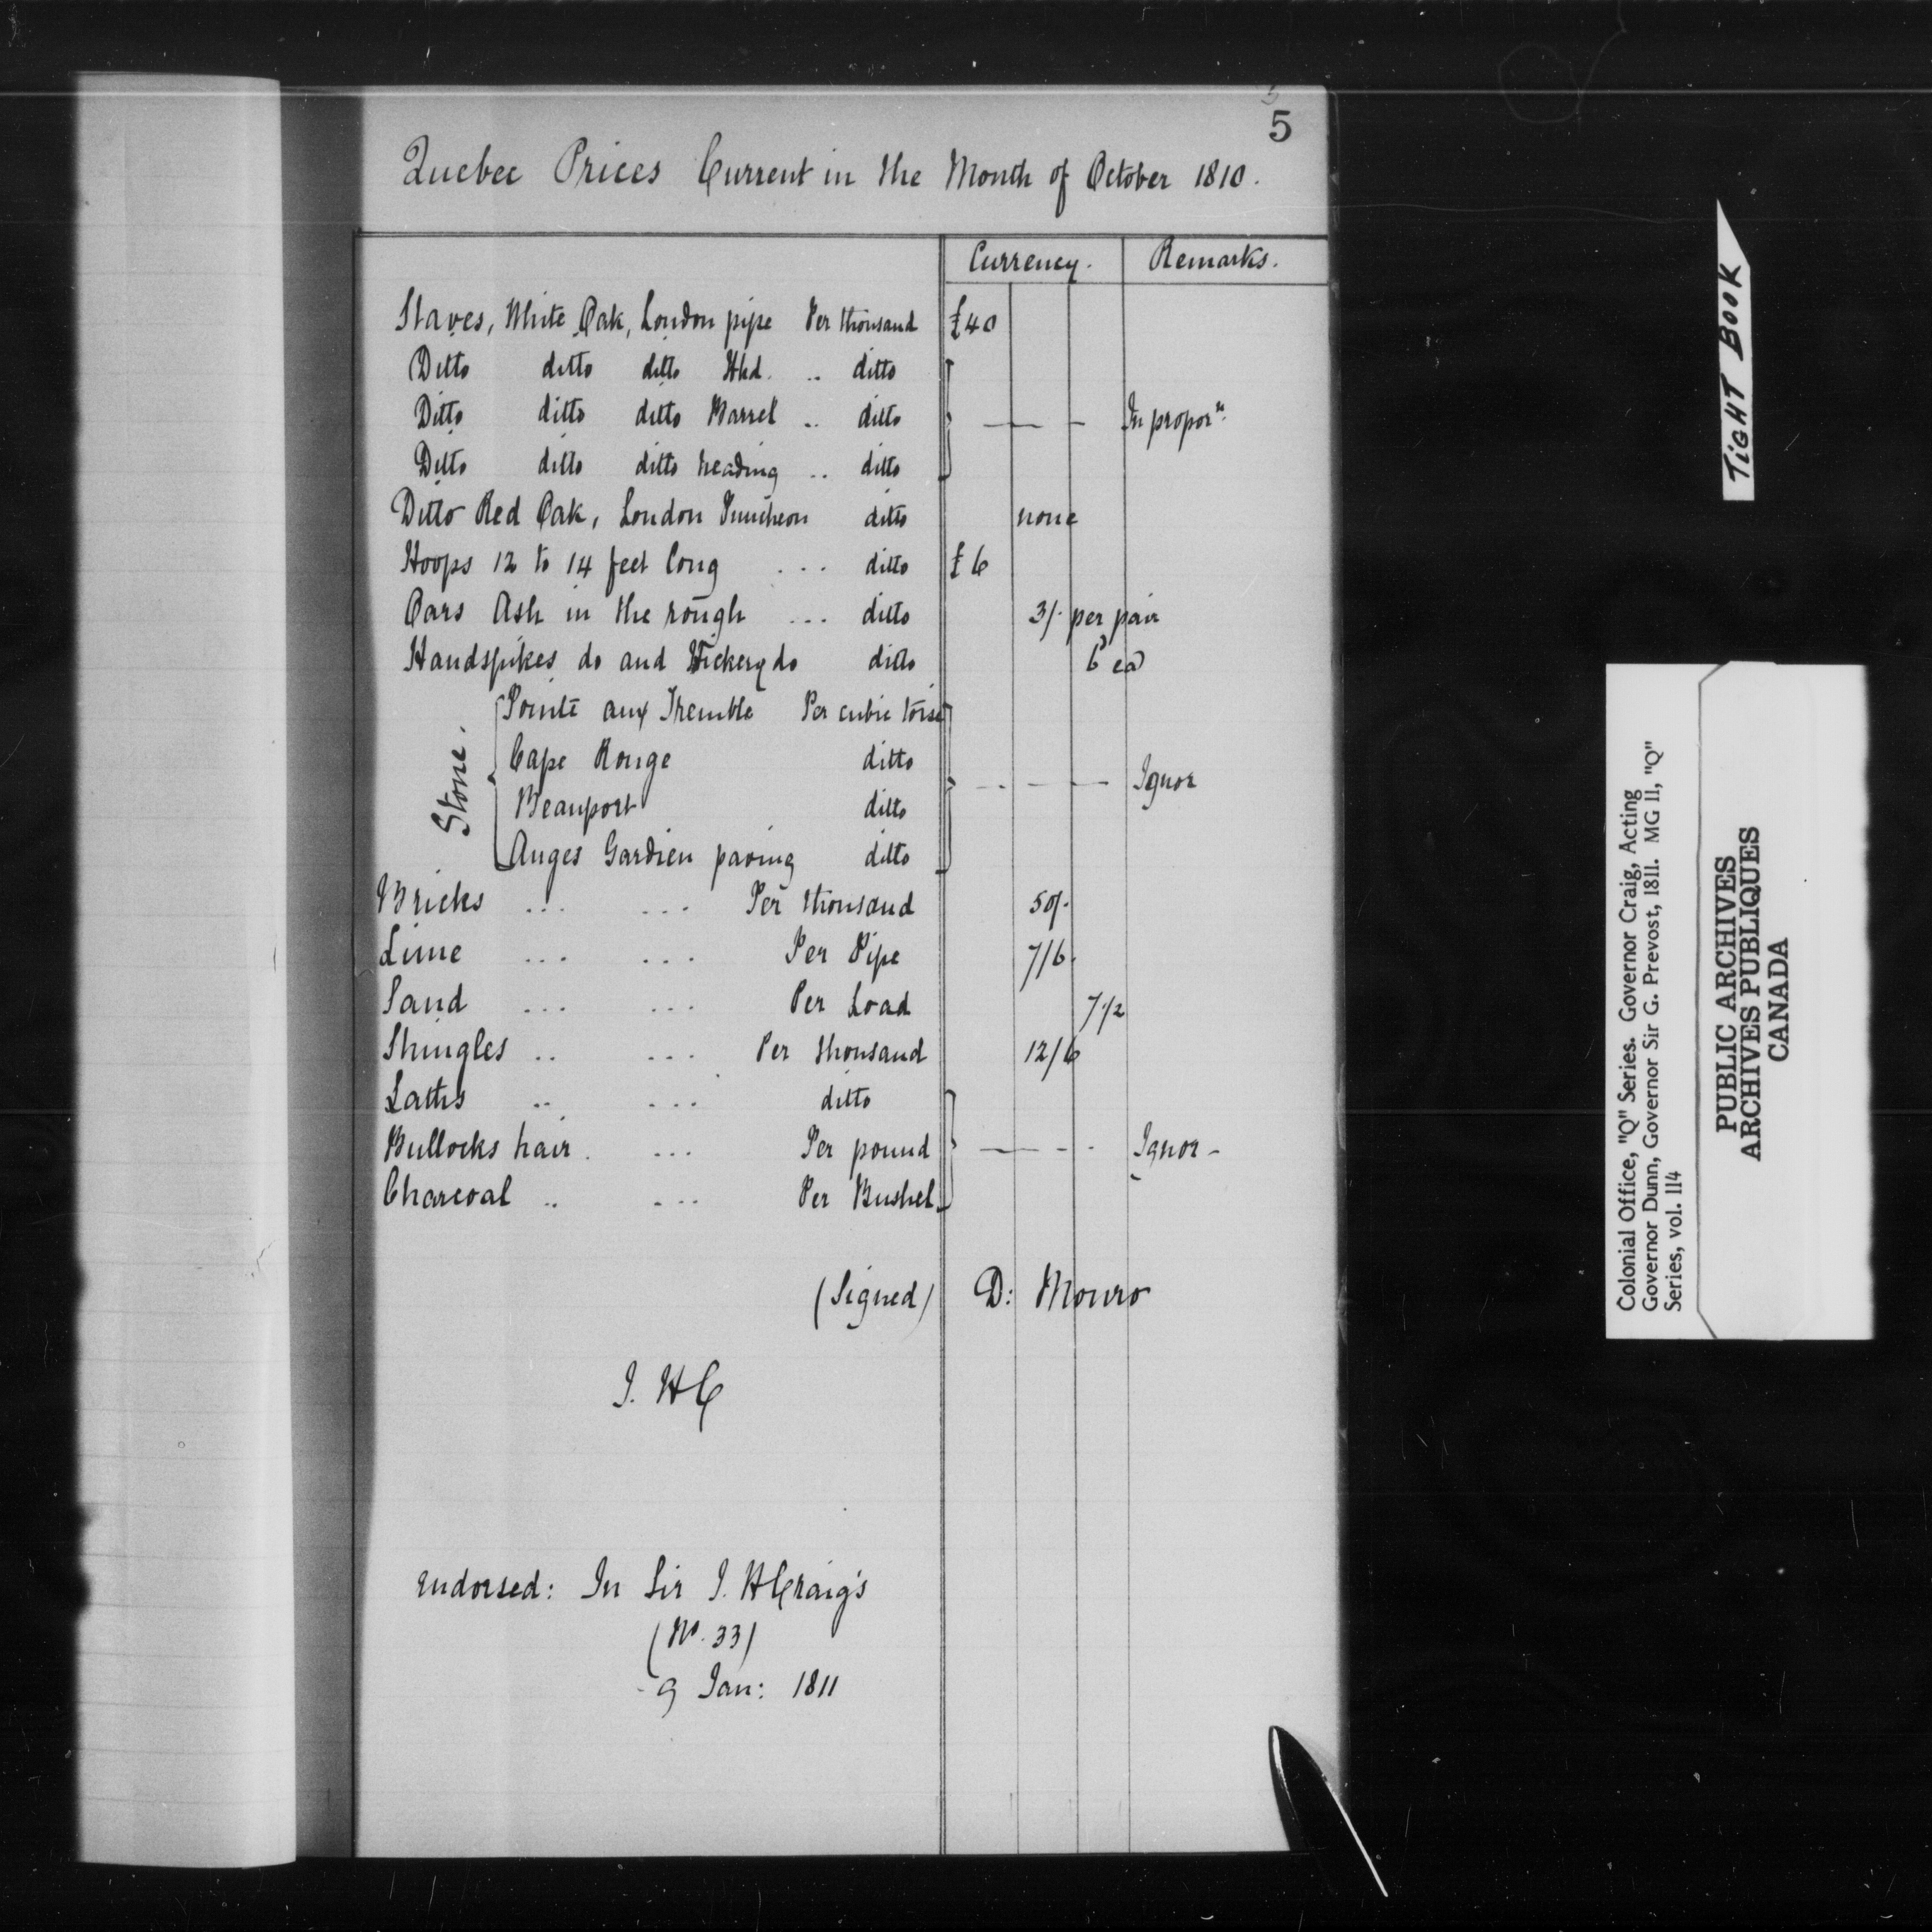 5
Quebec Prices Current in the Month of October 1810.
Currency. Remarks.
Staves, White Oak, London pipe Per thousand £40
Ditto ditto ditto Hhd. .. ditto
Ditto ditto ditto Barrel .. ditto — — In proporn.
Ditto ditto ditto heading .. ditto
Ditto Red Oak, London Puncheon ditto none
Hoops 12 to 14 feet long ... ditto £6
Oars Ash in the rough ... ditto 3/. per pair
Handspikes do and Hickery do ditto 6d ea
Stone.
Pointe aux Tremble Per cubic toise
Cape Rouge ditto
Beauport ditto — — — Ignor
Anges Gardien paving ditto
Bricks ... ... Per thousand 50/.
Lime ... ... Per Pipe 7/6.
Sand ... ... Per Load 7½
Shingles .. ... Per thousand 12/6
Laths .. ... ditto
Bullocks hair. ... Per pound — - - Ignor -
Charcoal .. ... Per Bushel
(Signed) D: Monro
J. H C
endorsed: In Sir J. H Craig's
(No. 33)
9 Jan: 1811
TIGHT BOOK
Colonial Office, "Q" Series. Governor Craig, Acting
Governor Dunn, Governor Sir G. Prevost, 1811. MG 11, "Q"
Series, vol. 114
PUBLIC ARCHIVES
ARCHIVES PUBLIQUES
CANADA